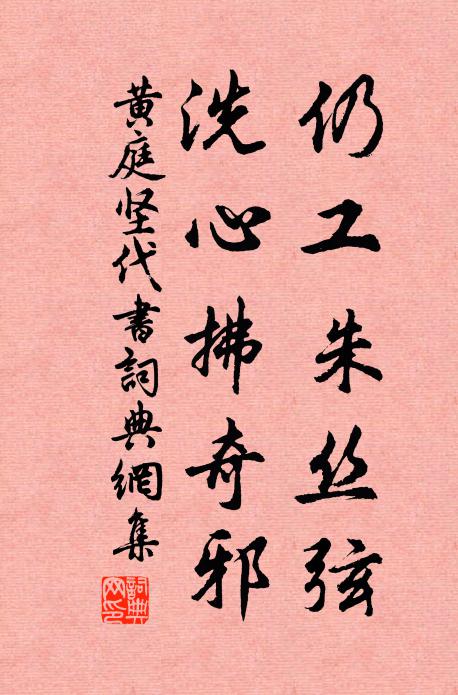 仍工朱丝弦
洗心拂奇邪
黄庭坚代书詞典網集
詞典
网印